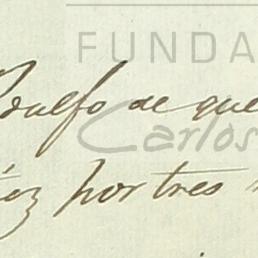 FUNDA
dulfo de que
Carlos
por tres